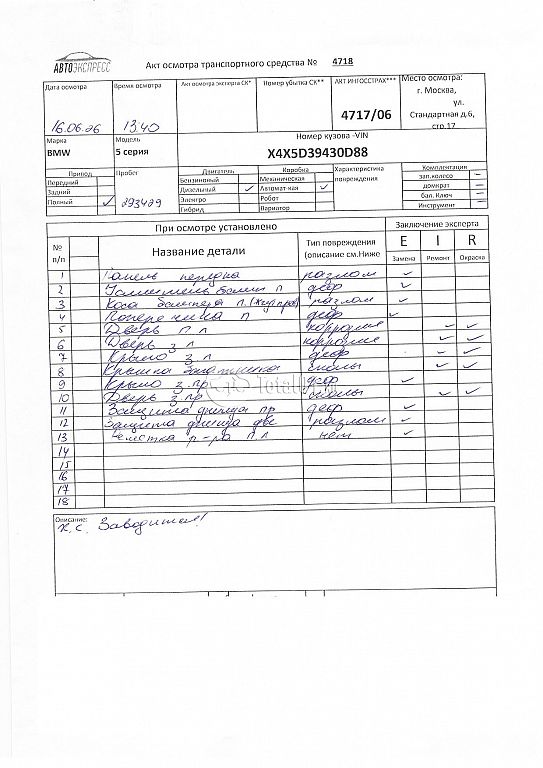 АВТОЭКСПРЕСС
Акт осмотра транспортного средства № 4718
Дата осмотра
16.06.26
Время осмотра
13.40
Акт осмотра эксперта СК*
Номер убытка СК**
АКТ ИНГОССТРАХ***
4717/06
Место осмотра:
г. Москва,
ул.
Стандартная д.6,
стр.17
Марка
BMW
Модель
5 серия
Номер кузова -VIN
X4X5D39430D88
Привод
Передний
Задний
Полный
Пробег
293429
Двигатель
Бензиновый
Дизельный
Электро
Гибрид
Коробка
Механическая
Автомат-кая
Робот
Вариатор
Характеристика
повреждения
Комплектация
зап.колесо
домкрат
бал. Ключ
Инструмент
При осмотре установлено
Заключение эксперта
№
п/п
Название детали
Тип повреждения
(описание см.Ниже
E I R
Замена Ремонт Окраска
1 Панель передка разлом
2 Усилитель бампера п деф
3 разлом
4 Поперечина п деф
5 Дверь п л коррозия
6 Дверь з л коррозия
7 Крыло з л деф
8 Крышка багажника сколы
9 Крыло з пр деф
10 Дверь з пр сколы
11 Защита днища пр деф
12 Защита днища разлом
13 р-ра п л нет
14
15
16
17
18
Total01.ru
Описание:
К.с. Заводится!